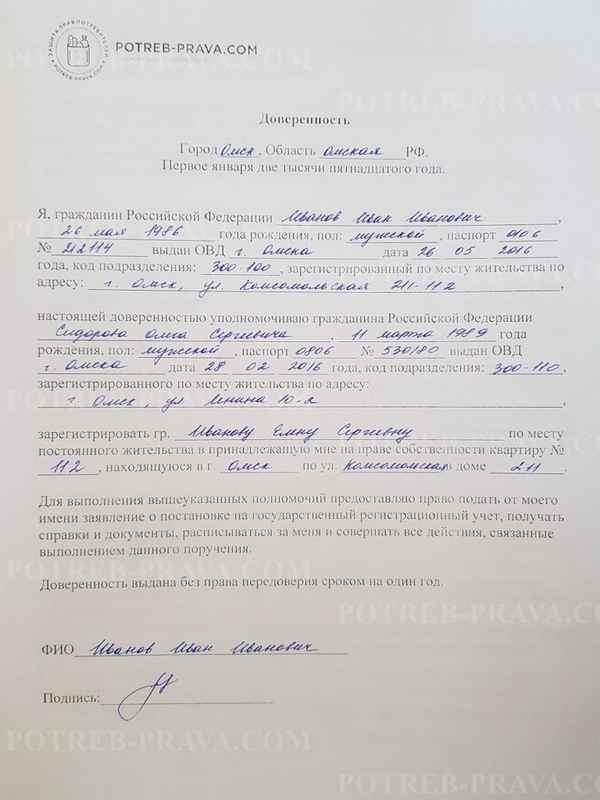 ЗАЩИТА ПРАВ ПОТРЕБИТЕЛЕЙ
POTREB-PRAVA.COM
POTREB-PRAVA.COM
Доверенность
Город Омск, Область Омская РФ.
Первое января две тысячи пятнадцатого года.
Я, гражданин Российской Федерации Иванов Иван Иванович,
26 мая 1986 года рождения, пол: мужской, паспорт 0106
№ 212114 выдан ОВД г. Омска дата 26 05 2016
года, код подразделения: 300-100, зарегистрированный по месту жительства по
адресу: г. Омск, ул. Комсомольская 211-112,
настоящей доверенностью уполномочиваю гражданина Российской Федерации
Сидорова Олега Сергеевича, 11 марта 1989 года
рождения, пол: мужской, паспорт 0806 № 530180 выдан ОВД
г. Омска дата 28 02 2016 года, код подразделения: 300-110,
зарегистрированного по месту жительства по адресу:
г. Омск, ул Ленина 10-2,
зарегистрировать гр. Иванову Елену Сергеевну по месту
постоянного жительства в принадлежащую мне на праве собственности квартиру №
112, находящуюся в г. Омск по ул. Комсомольская доме 211.
Для выполнения вышеуказанных полномочий предоставляю право подать от моего
имени заявление о постановке на государственный регистрационный учет, получать
справки и документы, расписываться за меня и совершать все действия, связанные
выполнением данного поручения.
Доверенность выдана без права передоверия сроком на один год.
ФИО Иванов Иван Иванович
Подпись:
POTREB-PRAVA.COM
POTREB-PRAVA.COM
POTREB-PRAVA.COM
POTREB-PRAVA.COM